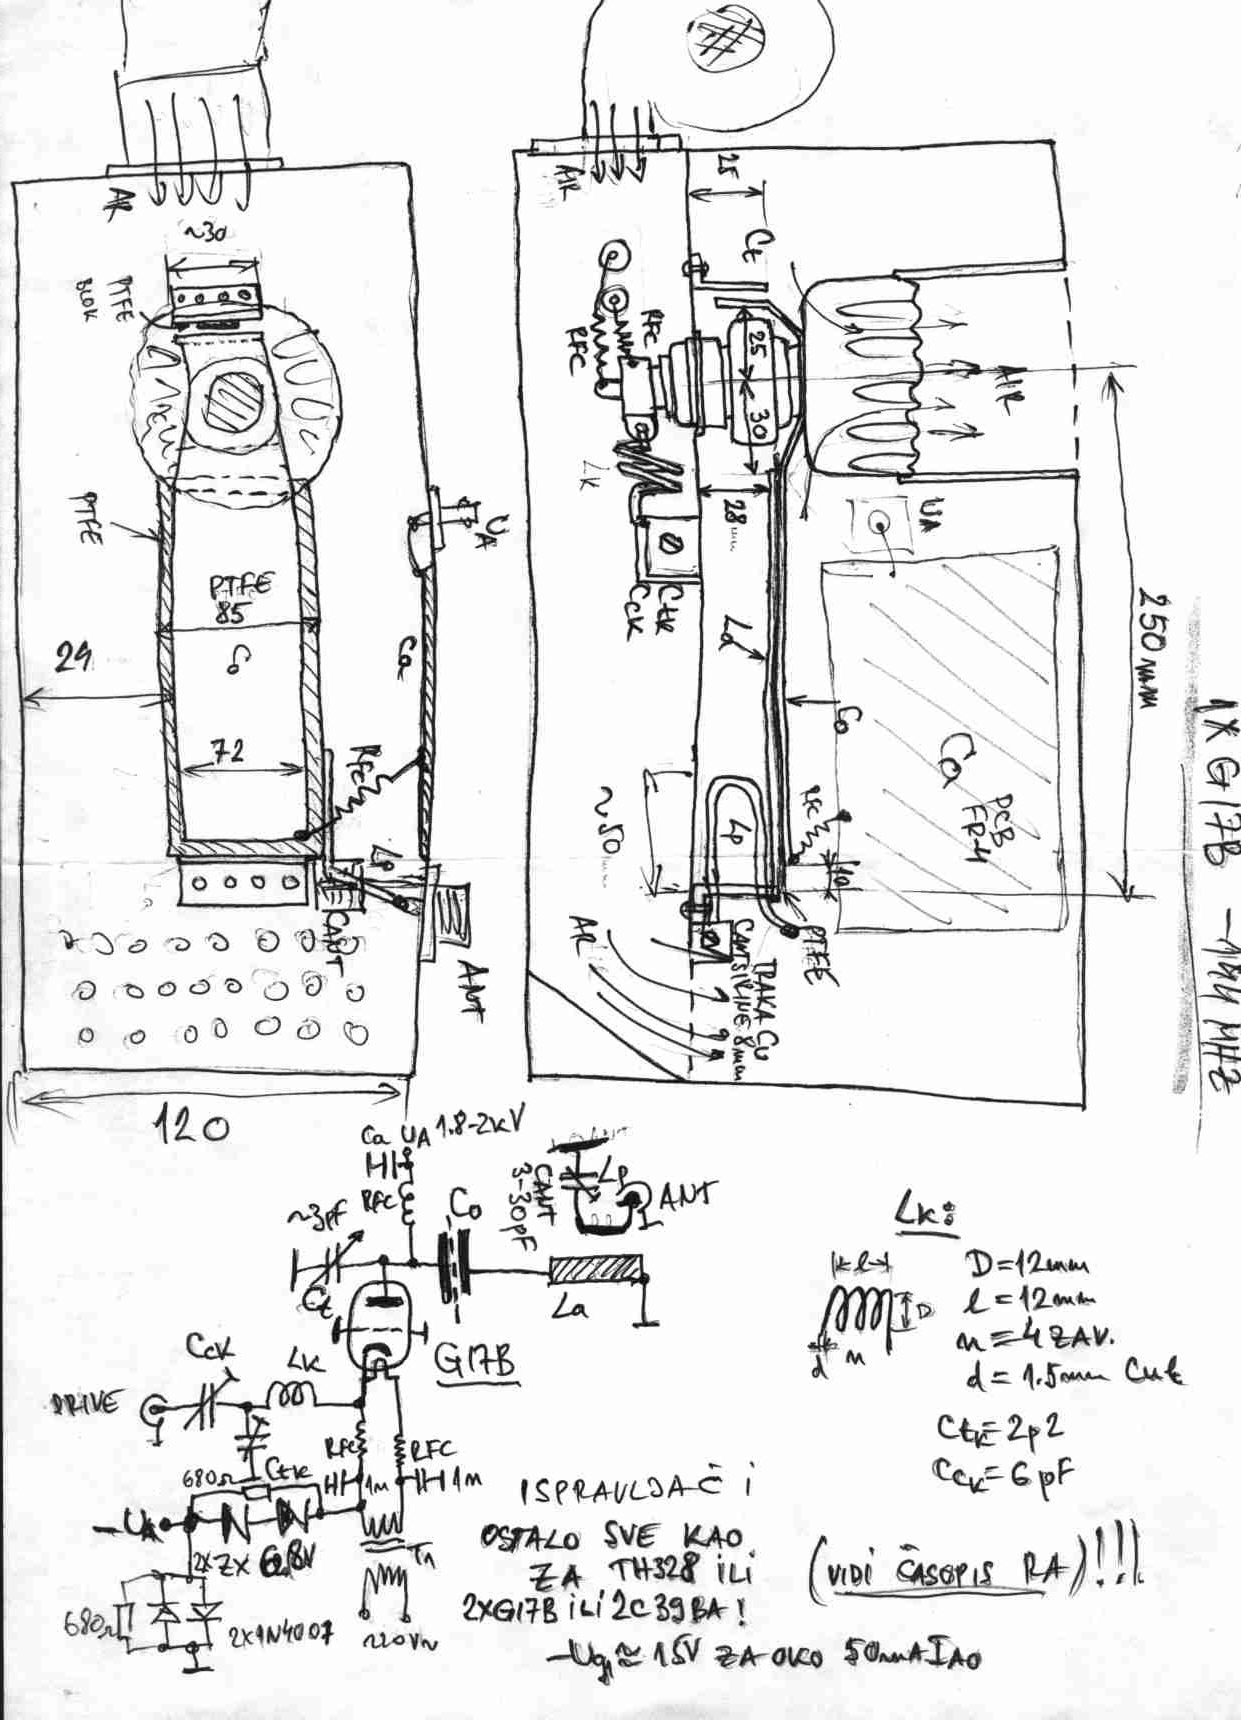 AIR
~30
PTFE
BLOK
PTFE
PTFE
85
29
72
Rfc
Ca
UA
Lp
CANT
ANT
120
AIR
25
Ct
RFC
RFC
25
30
AIR
Lk
28mm
UA
Cck
Ctk
Ld
Co
250mm
Ca
PCB
FR-4
RFC
~50mm
Lp
10
PTFE
AIR
CANT
TRAKA Cu
ŠIRINE 8mm
1X G17B - 144 MHz
Ca UA 1.8-2kV
RFC
~3pF
Ct
Co
CANT
3-30pF
Lp
ANT
La
G17B
Cck
Lk
DRIVE
Ctk
RFC
RFC
680Ω
1n
1n
-UA
2xZX 6.8V
Tr
680Ω
2X1N4007
~220V~
Lk:
l
D
d
n
D=12mm
l=12mm
n=4 ZAV.
d=1.5mm CuL
Ctk=2p2
Cck=6pF
ISPRAVLJAČ I
OSTALO SVE KAO
ZA TH328 ILI
2XG17B ILI 2C39BA!
(VIDI ČASOPIS RA)!!!
-Ug1≈15V ZA OKO 50mA IAO